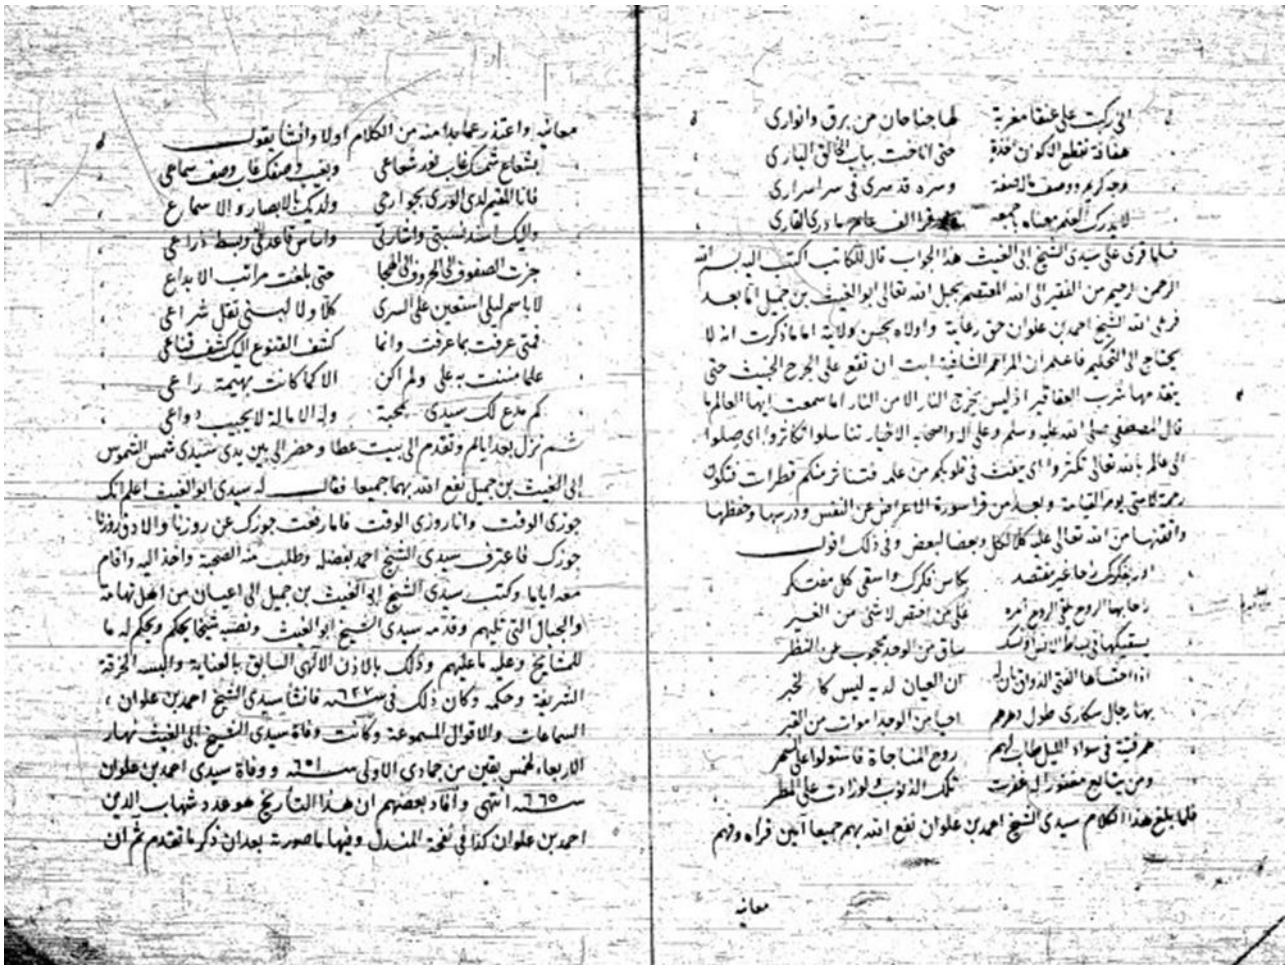 الى ركبت على عنقا مغربة لها جناحان من برق وانوارى
تقطع الاكوان حتى اناخت بباب الخالق البارى
وسره قد سرى فى سر اسرارى
لا يدرك معناه الف عام ما درى القارى
فلما قرى على سيدى الشيخ ابى الغيث هذا الجواب قال للكاتب اكتب اليه بسم الله
الرحمن الرحيم من الفقير الى الله المعتصم بحبل الله تعالى ابو الغيث بن جميل اما بعد
فرعى الله الشيخ احمد بن علوان حق رعاية واولاه بحسن ولاية اما ما ذكرت انه لا
يحتاج الى التحكيم فاعلم ان المراهم الشافية ابت ان تقع على الجرح الخبيث حتى
يتقدمها شرب العقاقير اذ ليس يخرج النار الا من النار اما سمعت ايها العالم ما
قال المصطفى صلى الله عليه وسلم وعلى اله واصحابه الاخيار تناسلوا تكاثروا اى صلوا
الى عالم بالله تعالى تكثروا اى ينفث فى قلوبكم من علمه فتناثر منكم قطرات فتكون
رحمة لامتى يوم القيامة وبعد من قرا سورة الاعراض عن النفس ودرسها وحفظها
وافقتها من الله تعالى عليه كلا لكل وبعضا لبعض وفى ذلك اقول
غير مقتصد بكاس فكرك واسقى كل مفتكر
الروح من الغير
ساق من الوجد محجوب عن النظر
الفتى ان العيان لديه ليس كالخبر
بها رجال سكارى طول دهرهم احيا من الوجد اموات من القبر
هم فتية فى سواد الليل طاب لهم روح المناجاة فاستولوا على السهر
ومن يتابع مغفورا له غفرت تلك الذنوب ولو زادت على المطر
فلما بلغ هذا الكلام سيدى الشيخ احمد بن علوان نفع الله بهم جميعا آمين قراه وفهم
معانيه
معانيه واعتذر عما بدا منه من الكلام اولا وانشا يقول
بشعاع شمسك غاب نور شعاعى وبغيب وصفك غاب وصف سماعى
فانا المقيم لدى الورى بجوارحى ولديك بالابصار والاسماع
واليك اسند نسبتى واشارتى وبسط ذراعى
جزت الصفوف الى الحروف الى الهجا حتى بلغت مراتب الابداع
لا باسم ليلى استعين على السرى كلا ولا لبنى تقل شراعى
فمتى عرفت بما عرفت وانما كشف القنوع اليك كشف قناعى
علما مننت به على ولم اكن الا كما كانت بهيمة راعى
كم مدع لك سيدى بمحبة لا يجيب دواعى
ثم نزل بعد ايام وتقدم الى بيت عطا وحضر الى بين يدى سيدى شمس الشموس
ابى الغيث بن جميل نفع الله بهما جميعا فقال له سيدى ابو الغيث اعلم انك
جوزى الوقت وانا روزى الوقت فاما رفعت جوزك عن روزنا والا دق روزنا
جوزك فاعترف سيدى الشيخ احمد بفضله وطلب منه الصحبة واخذ اليد واقام
معه اياما وكتب سيدى الشيخ ابى الغيث بن جميل الى اعيان من اهل تهامة
والجبال التى تليهم وقدمه سيدى الشيخ ابو الغيث ونصبه شيخا يحكم ويحكم له ما
للمشايخ وعليه ما عليهم وذلك بالاذن الالهى السابق بالعناية والبسه الخرقة
الشريفة وحكمه وكان ذلك فى سنه ٦٢٧ فانشا سيدى الشيخ احمد بن علوان
السماعات والاقوال المسموعة وكانت وفاة سيدى الشيخ ابى الغيث نهار
الاربعاء لخمس بقين من جمادى الاولى سنه ٦٥١ ووفاة سيدى احمد بن علوان
سنه ٦٦٥ انتهى وافاد بعضهم ان هذا التأريخ هو عدد شهاب الدين
احمد بن علوان كذا فى نفحة المندل وفيها ما صورته بعد ان ذكر ما تقدم ثم ان